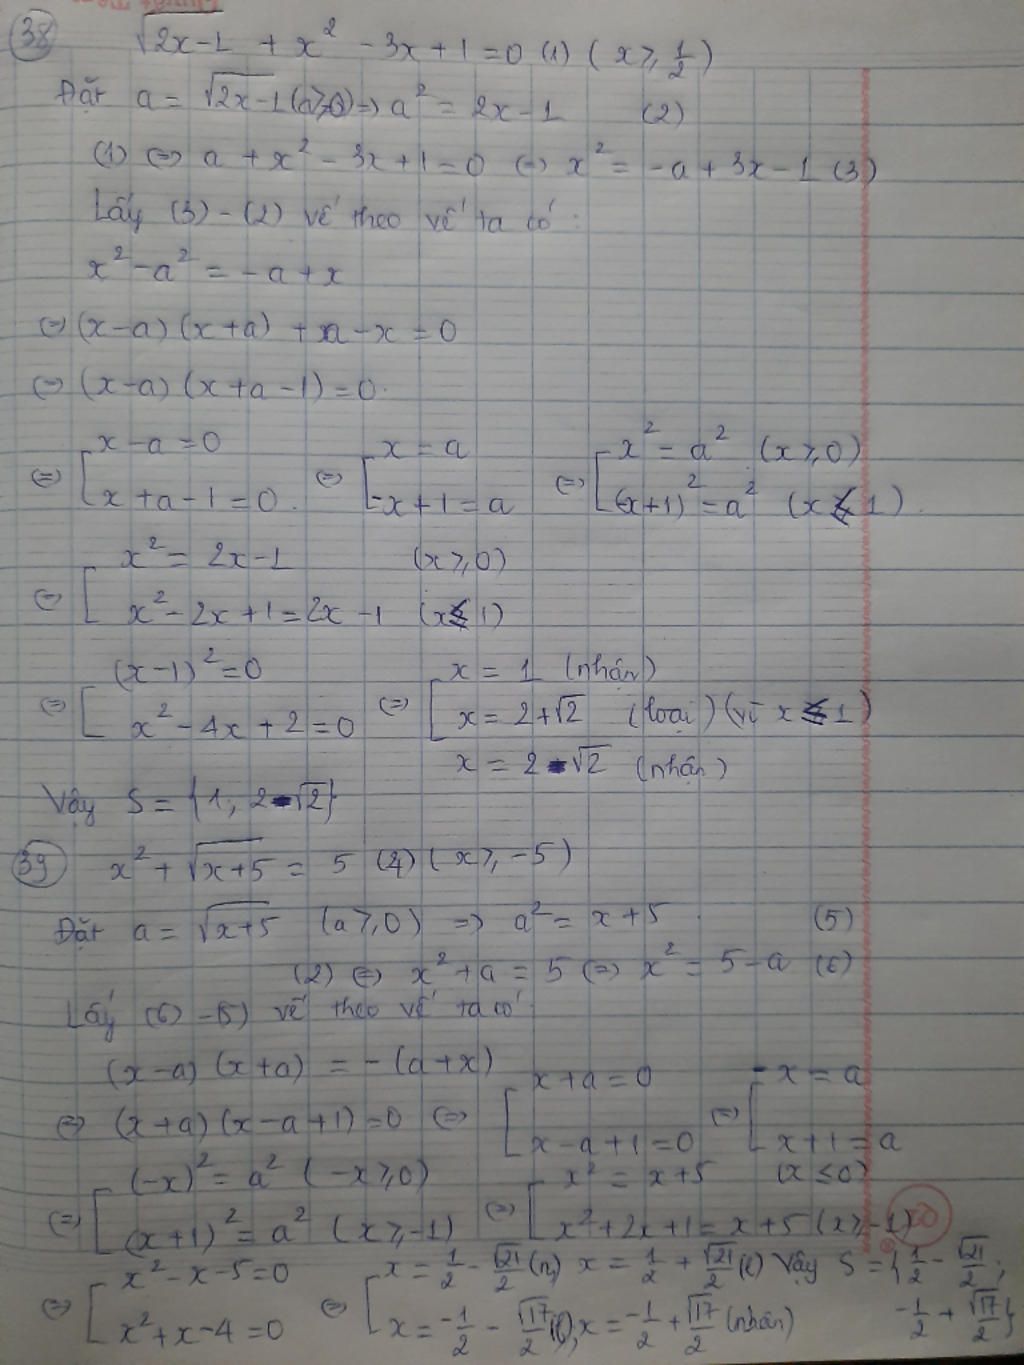 38 √2x-1 + x² - 3x + 1 = 0 (1) ( x ⩾ 1/2 )
Đặt a = √2x-1 (a⩾0) => a² = 2x - 1 (2)
(1) <=> a + x² - 3x + 1 = 0 <=> x² = -a + 3x - 1 (3)
Lấy (3) - (2) vế theo vế ta có :
x² - a² = -a + x
<=> (x-a) (x+a) + a - x = 0
<=> (x-a) (x+a-1) = 0.
<=> [ x - a = 0 <=> [ x = a <=> [ x² = a² (x⩾0)
x + a - 1 = 0. -x + 1 = a (-x+1)² = a² (x ⩽ 1).
<=> [ x² = 2x - 1 (x⩾0)
x² - 2x + 1 = 2x - 1 (x ⩽ 1)
<=> [ (x-1)² = 0 <=> [ x = 1 (nhận)
x² - 4x + 2 = 0 x = 2 + √2 (loại) (vì x ⩽ 1)
x = 2 - √2 (nhận)
Vậy S = {1, 2 - √2}
39 x² + √x+5 = 5 (4) ( x ⩾ -5 )
Đặt a = √x+5 (a ⩾ 0) => a² = x + 5 (5)
(2) <=> x² + a = 5 <=> x² = 5 - a (6)
Lấy (6) - (5) vế theo vế ta có
(x-a) (x+a) = - (a+x)
<=> (x+a) (x-a+1) = 0 <=> [ x + a = 0 <=> [ -x = a
x - a + 1 = 0 x + 1 = a
<=> [ (-x)² = a² (-x⩾0) <=> [ x² = x + 5 (x ≤ 0)
(x+1)² = a² (x ⩾ -1) x² + 2x + 1 = x + 5 (x ⩾ -1)
<=> [ x² - x - 5 = 0 <=> [ x = 1/2 - √21/2 (n) x = 1/2 + √21/2 (l) Vậy S = { 1/2 - √21/2 ;
x² + x - 4 = 0 x = -1/2 - √17/2 (l), x = -1/2 + √17/2 (nhận) -1/2 + √17/2 }